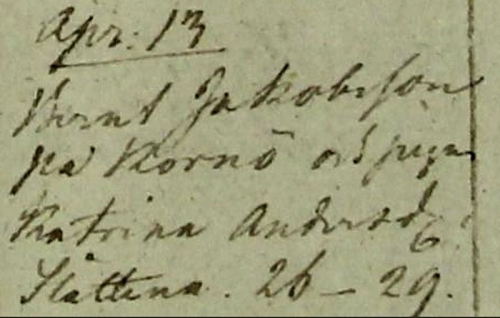 Apr: 13
Bernt Jakobsson
på Kornö och pigan
Katrina Andersd:
Slättna. 26 – 29.